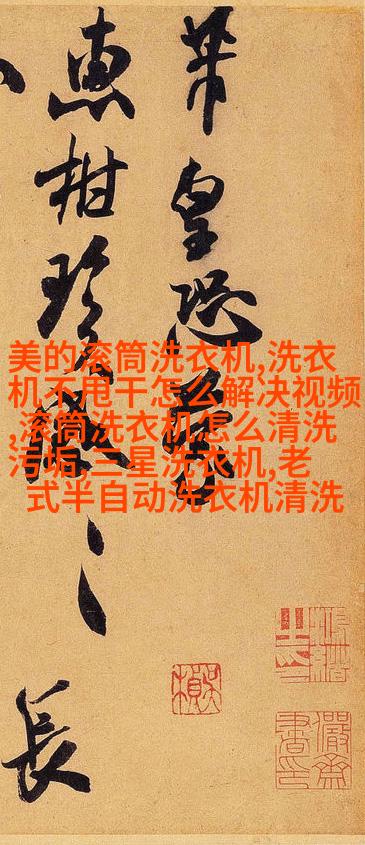 皇恐
惠柑珍
長
美的滚筒洗衣机,洗衣
机不甩干怎么解决视频
,滚筒洗衣机怎么清洗
污垢,三星洗衣机,老
式半自动洗衣机清洗